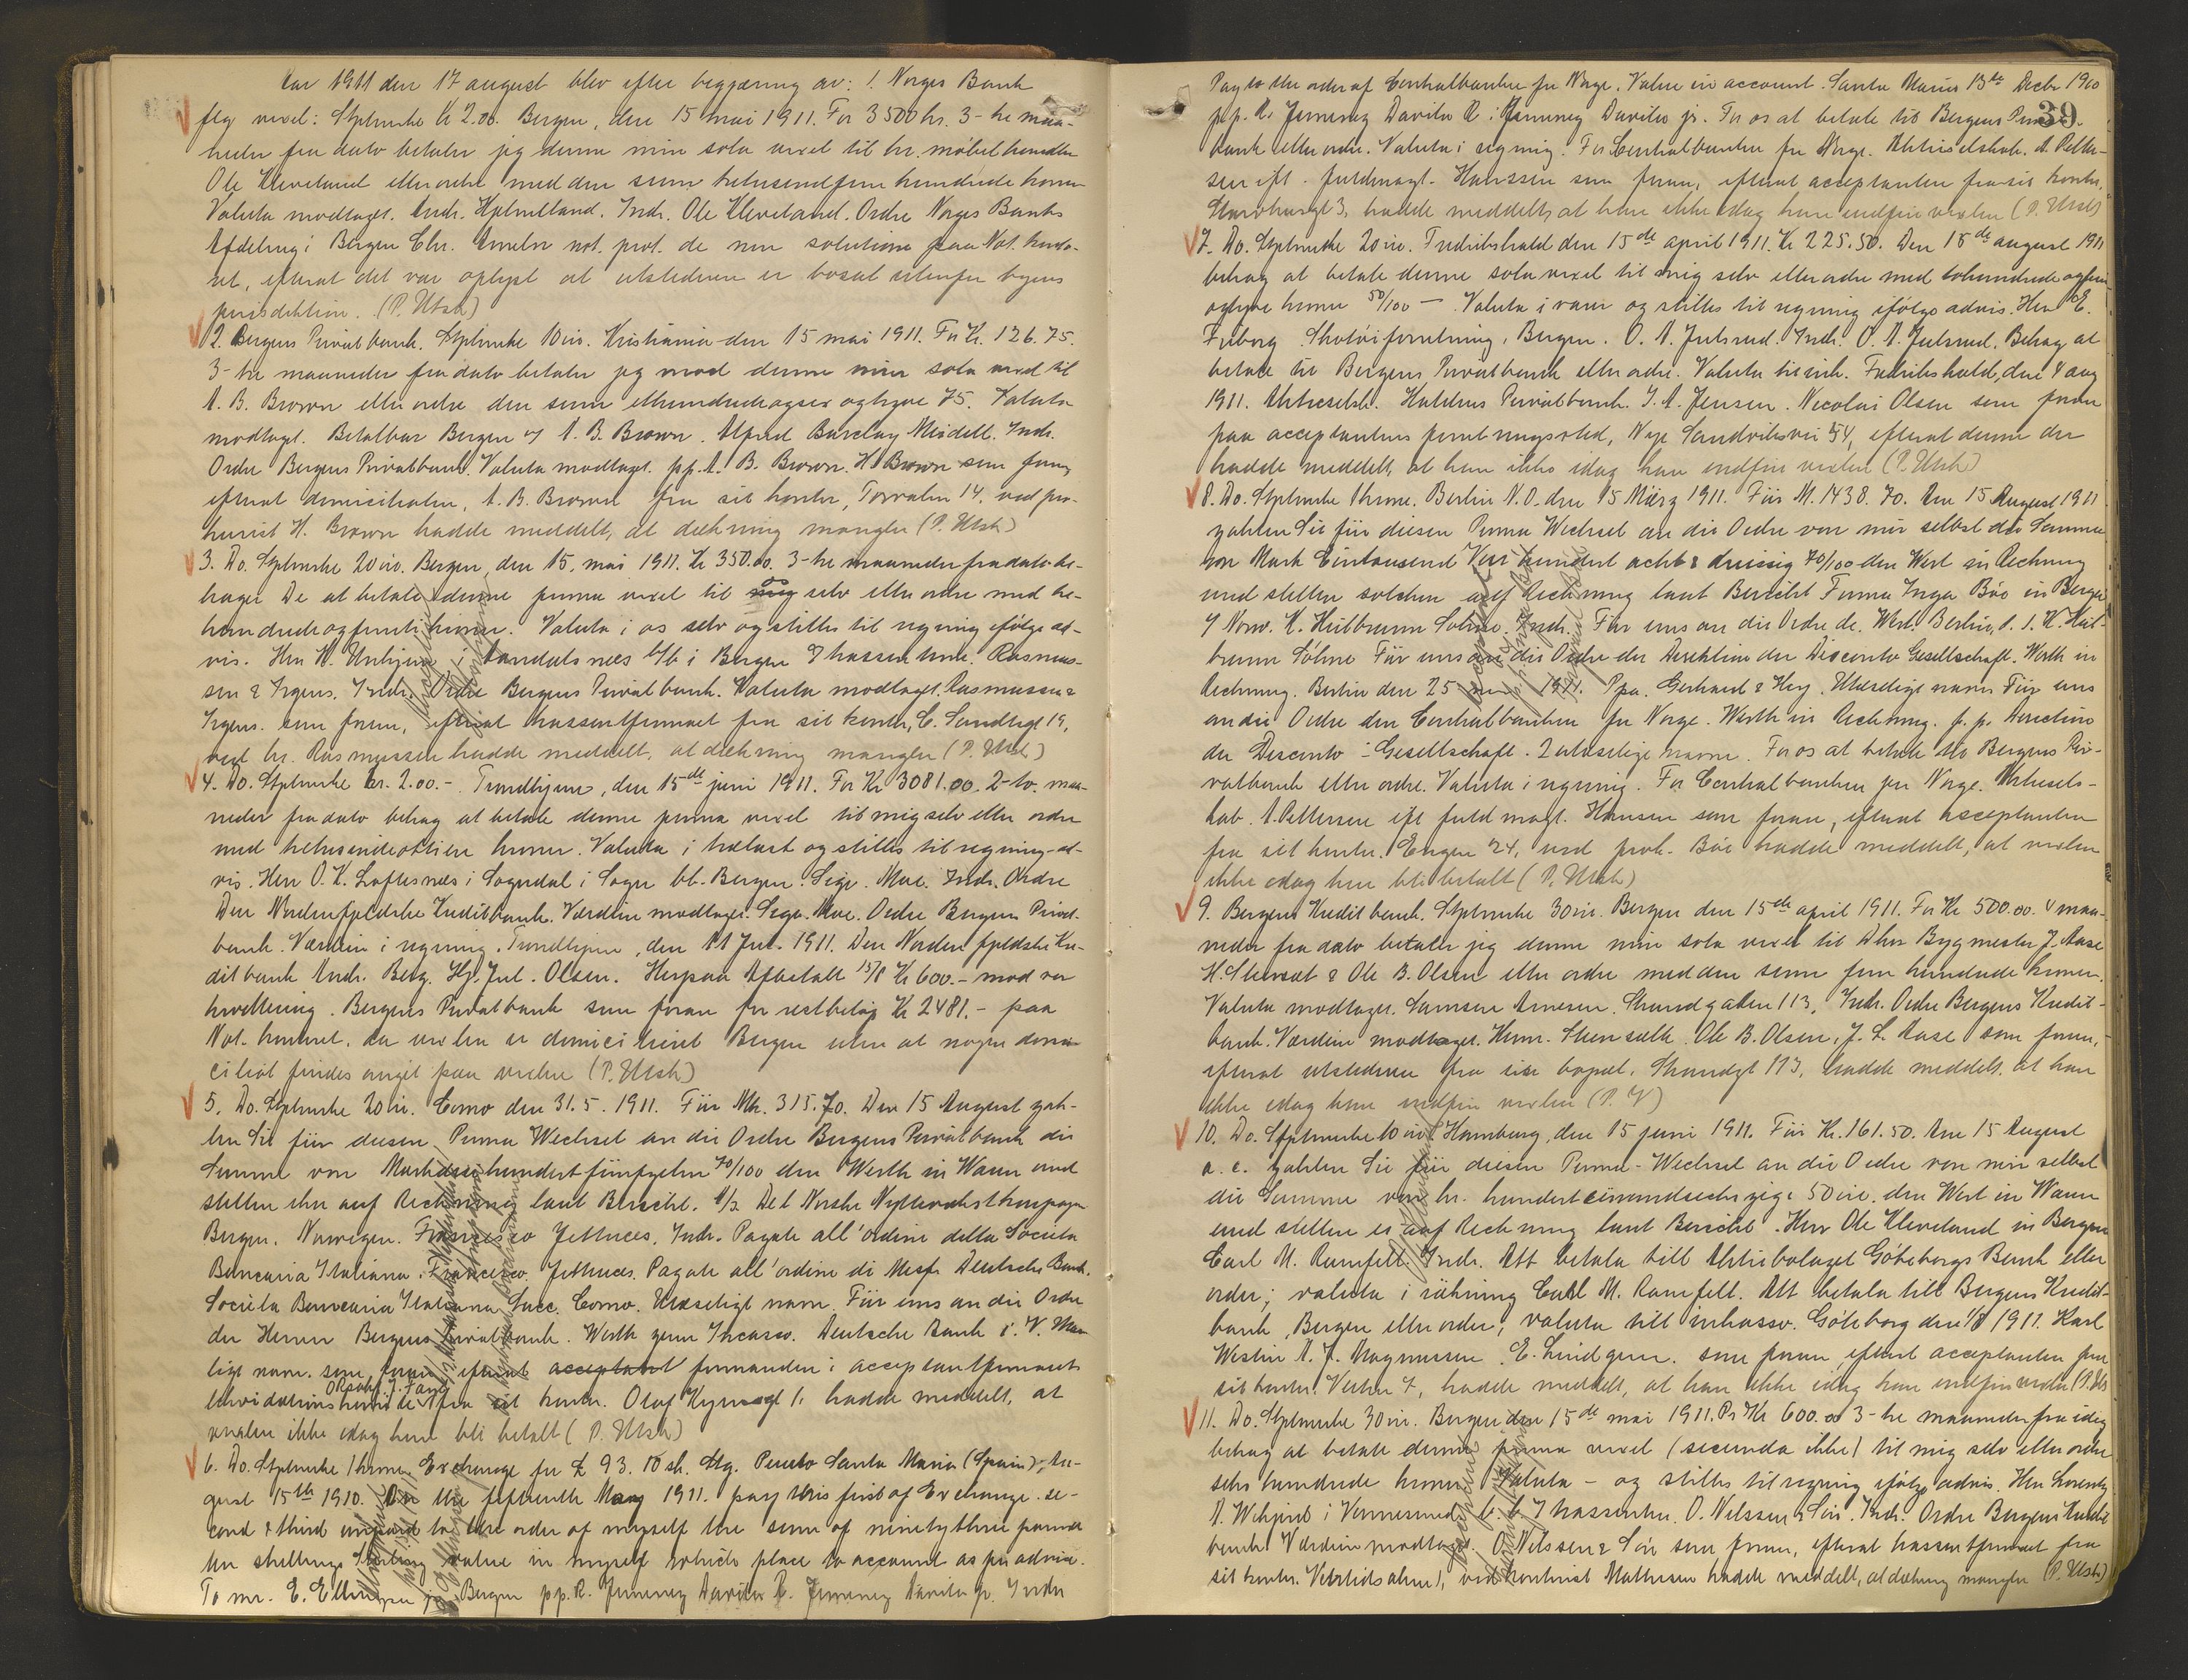 Aar 1911 den 17 august blev efter begjæring av: 1. Norges Bank
flg vexel: Stplmrke kr 2.00. Bergen, den 15 mai 1911. For 3500 kr. 3-tre maa-
neder fra dato betaler jeg denne min sola vexel til hr. møbelhandler
Ole Kleveland eller ordre med den sum tretusendfem hundrede kroner
Valuta modtaget. Andr. Hjelmeland. Indr. Ole Kleveland. Ordre Norges Banks
Afdeling i Bergen Chr. not. prot. de non solutione paa Not. konto-
ret, efterat det var oplyst at utstederen er bosat utenfor byens
jurisdiktion. (P. Utsh)
2. Bergens Privatbank. Stplmrke 10 øre. Kristiania den 15 mai 1911. For Kr. 126.75.
3-tre maaneder fra dato betaler jeg mod denne min sola vexel til
A. B. Brown eller ordre den sum ethundredeogsex ogtyve 75. Valuta
modtaget. Betalbar Bergen c/ A. B. Brown. Alfred Barclay Meidell. Indr.
Ordre Bergens Privatbank. Valuta modtaget. pp. A. B. Brown. H. Brown som foran,
efterat domiciliaten, A. B. Brown fra sit kontor, Torvalm 14, ved pro-
kurist H. Brown hadde meddelt, at dækning mangler (P. Utsh)
3. Do. Stplmrke 20 øre. Bergen, den 15, mai 1911. Kr 350.00. 3-tre maaneder fra dato be-
hager De at betale denne prima vexel til os selv eller ordre med tre-
hundredeogfemti kroner. Valuta i os selv og stilles til regning ifølge ad-
vis. Hrr i Tandalsnes b/b i Bergen Thassen Rasmus-
sen & Irgens. Indr. Ordre Bergens Privatbank. Valuta modtaget. Rasmussen &
Irgens. som foran, efterat trassentfirmaet fra sit kontor, C. Sundtsgt 19,
ved hr. Rasmussen hadde meddelt, at dækning mangler (P. Utsh)
4. Do. Stplmrke kr. 2.00.- Trondhjem, den 15de juni 1911. For Kr 3081.00. 2-to. maa-
neder fra dato behag at betale denne prima vexel til mig selv eller ordre
med tretusindeottien kroner. Valuta i trælast og stilles til regning ad-
vis. Herr O. K. Loftesnes i Sogndal i Sogn bb. Bergen. Sigv. Moe. Indr. Ordre
Den Nordenfjeldske Kreditbank. Værdien modtaget. Sigv. Moe. Ordre Bergens Privat-
bank. Værdien i regning. Trondhjem, den 11 Jul. 1911. Den Nordenfjeldske Kre-
ditbank Andr. Berg. Hj. Jul. Olsen. Herpaa Afbetalt 15/8 Kr 600.- mod re
kvittering. Bergens Privatbank som foran for restbeløp Kr 2481.- paa
Not. kontoret, da vexlen er domicilieret Bergen uten at nogen domi-
ciliat findes angit paa vexlen (P. Utsh)
5. Do. Stplmrke 20 øre. Como den 31.5.1911. Für Mk. 315.70. Den 15 August zah-
len Sie für diesen Prima Wechsel an die Ordre Bergens Privatbank die
Summe von Mark dreihundertfünfzehn 70/100 den Werth in Waren und
stellen ihn auf Rechnung laut Bericht. A/S. Det Norske
Bergen. Norwegen. Francesco Indr. Pagate all'ordine della Societa
Bancaria Italiana. Francesco Pagate all'ordine di Deutsche Bank.
Societa Bancaria Italiana Succ. Como. Ulæseligt navn. Für uns an die Ordre
der Herren Bergens Privatbank. Werth zum Incasso. Deutsche Bank
ligt navn. som foran efterat acceptant formanden i acceptantfirmaets
likvidationskomite fra sit kontor. Olaf Kyrresgt 1. hadde meddelt, at
vexlen ikke idag kan bli betalt (P. Utsh)
6. Do. Stplmrke 1 krone. Exchange for £ 93.10 sh. Stg. Puerto Santa Maria (Spain), Au-
gust 15th 1910. On the fifteenth May 1911. pay this first of Exchange. se-
cond & third unpaid to the order of myself the sum of ninetythree pounds
ten shillings Sterling value in myself which place to account as per advice.
To mr. E. Ellingsen jr Bergen pp. R. Jimenez Davila R. Jimenez Davila jr. Indr
39
Pay to the order of Centralbanken for Norge. Value in account. Santa Maria 13th Decbr 1910
p.p. R. Jimenez Davila R. Jimenez Davila jr. For os at betale til Bergens Privat-
bank eller ordre. Valuta i regning. For Centralbanken for Norge. Aktieselskab. A. Petter-
sen ifl. fuldmagt. Hanssen som foran, efterat acceptanten fra sit kontor,
3, hadde meddelt, at han ikke idag kan indfri vexlen (P. Utsh)
7. Do. Stplmrke 20 øre. Fredrikshald den 15de april 1911. Kr 225.50. Den 15de august 1911
behag at betale denne sola vexel til mig selv eller ordre med tohundrede ogfem
ogtyve kroner 50/100 — Valuta i varer og stilles til regning ifølge advis. Herr E.
Friborg Skotøiforretning, Bergen. O. A. Julsrud. Indr. O. A. Julsrud. Behag at
betale til Bergens Privatbank eller ordre. Valuta til ink. Fredrikshald, den 4 aug
1911. Aktieselsk. Haldens Privatbank. J. A. Jensen. Nicolai Olsen som foran
paa acceptantens forretningssted, Nye Sandviksvei 54, efterat denne der
hadde meddelt, at han ikke idag kan indfri vexlen (P. Utsh)
8. Do. Stplmrke 1 krone. Berlin N.O. den 15 März 1911. Für M. 1438.70. Am 15 August 1911
zahlen Sie für diesen Prima Wechsel an die Ordre von mir selbst die Summe
von Mark Eintausend Vierhundert acht & dreissig 70/100 den Wert in Rechnung
und stellen solchen auf Rechnung laut Bericht Firma Inga Bøe in Bergen
i/ Norw. K. Heilbrunn Söhne. Indr. Für uns an die Ordre de. Berlin, K. Heil-
brunn Söhne Für uns an die Ordre der Direktion der Disconto Gesellschaft. Werth in
Rechnung. Berlin den 25 1911. Ppa. Gerhard & Hey. Ulæselige navne Für uns
an die Ordre den Centralbanken for Norge. Werth in Rechnung. p. p. Direction
der Disconto-Gesellschaft. 2 ulæselige navne. For os at betale til Bergens Pri-
vatbank eller ordre. Valuta i regning. For Centralbanken for Norge. Aktiesels-
kab. A. Pettersen ifl fuldmagt. Hansen som foran, efterat acceptanten
fra sit kontor. Engen 24, ved prok. Bøe hadde meddelt, at vexlen
ikke idag kan bli betalt (P. Utsh)
9. Bergens Kreditbank. Stplmrke 30 øre. Bergen den 15de april 1911. For Kr 500.00. 4 maa-
neder fra dato betaler jeg denne min sola vexel til Dhrr Bygmester J. Aase
H. Stensæt & Ole B. Olsen eller ordre med den sum fem hundrede kroner.
Valuta modtaget. Samson Arnesen. Strandgaten 113. Indr. Ordre Bergens Kredit-
bank. Værdien modtaget. Henr. Stensæth. Ole B. Olsen. J. L. Aase som foran,
efterat utstederen fra sin bopæl, Strandgt 113, hadde meddelt, at han
ikke idag kan indfri vexlen (P. U)
10. Do. Stplmrke 10 øre Hamburg, den 15 juni 1911. Für Kr. 161.50. Am 15 August
a. c. zahlen Sie für diesen Prima-Wechsel an die Ordre von mir selbst
die Summe von kr. hunderteinundsechszig & 50 øre. den Wert in Waren
und stellen es auf Rechnung laut Bericht. Herr Ole Kleveland in Bergen
Carl M. Ramfelt. Indr. Att betala till Aktiebolaget Göteborgs Bank eller
order; valuta i räkning Carl M. Ramfelt. Att betala till Bergens Kredit-
bank, Bergen eller order, valuta till inkasso. Göteborg den 1/8 1911. Karl
Westin A. J. Magnusson. E. Lindgren. som foran, efterat acceptanten fra
sit kontor. Vesten 7, hadde meddelt, at han ikke idag kan indfri vexlen (P. Uts
11. Do. Stplmrke 30 øre. Bergen den 15de mai 1911. Pr Kr 600.00 3-tre maaneder fra idag
behag at betale denne prima vexel (secunda ikke) til mig selv eller ordre
seks hundrede kroner Valuta - og stilles til regning ifølge advis. Herr Lorentz
A. i b. b. O. Nilssen & Søn. Indr. Ordre Bergens Kredit
bank Værdien modtaget. O. Nilssen & Søn som foran, efterat trassentfirmaet fra
sit kontor. ved kontorist Mathiesen hadde meddelt, at dækning mangler (P. Utsh)